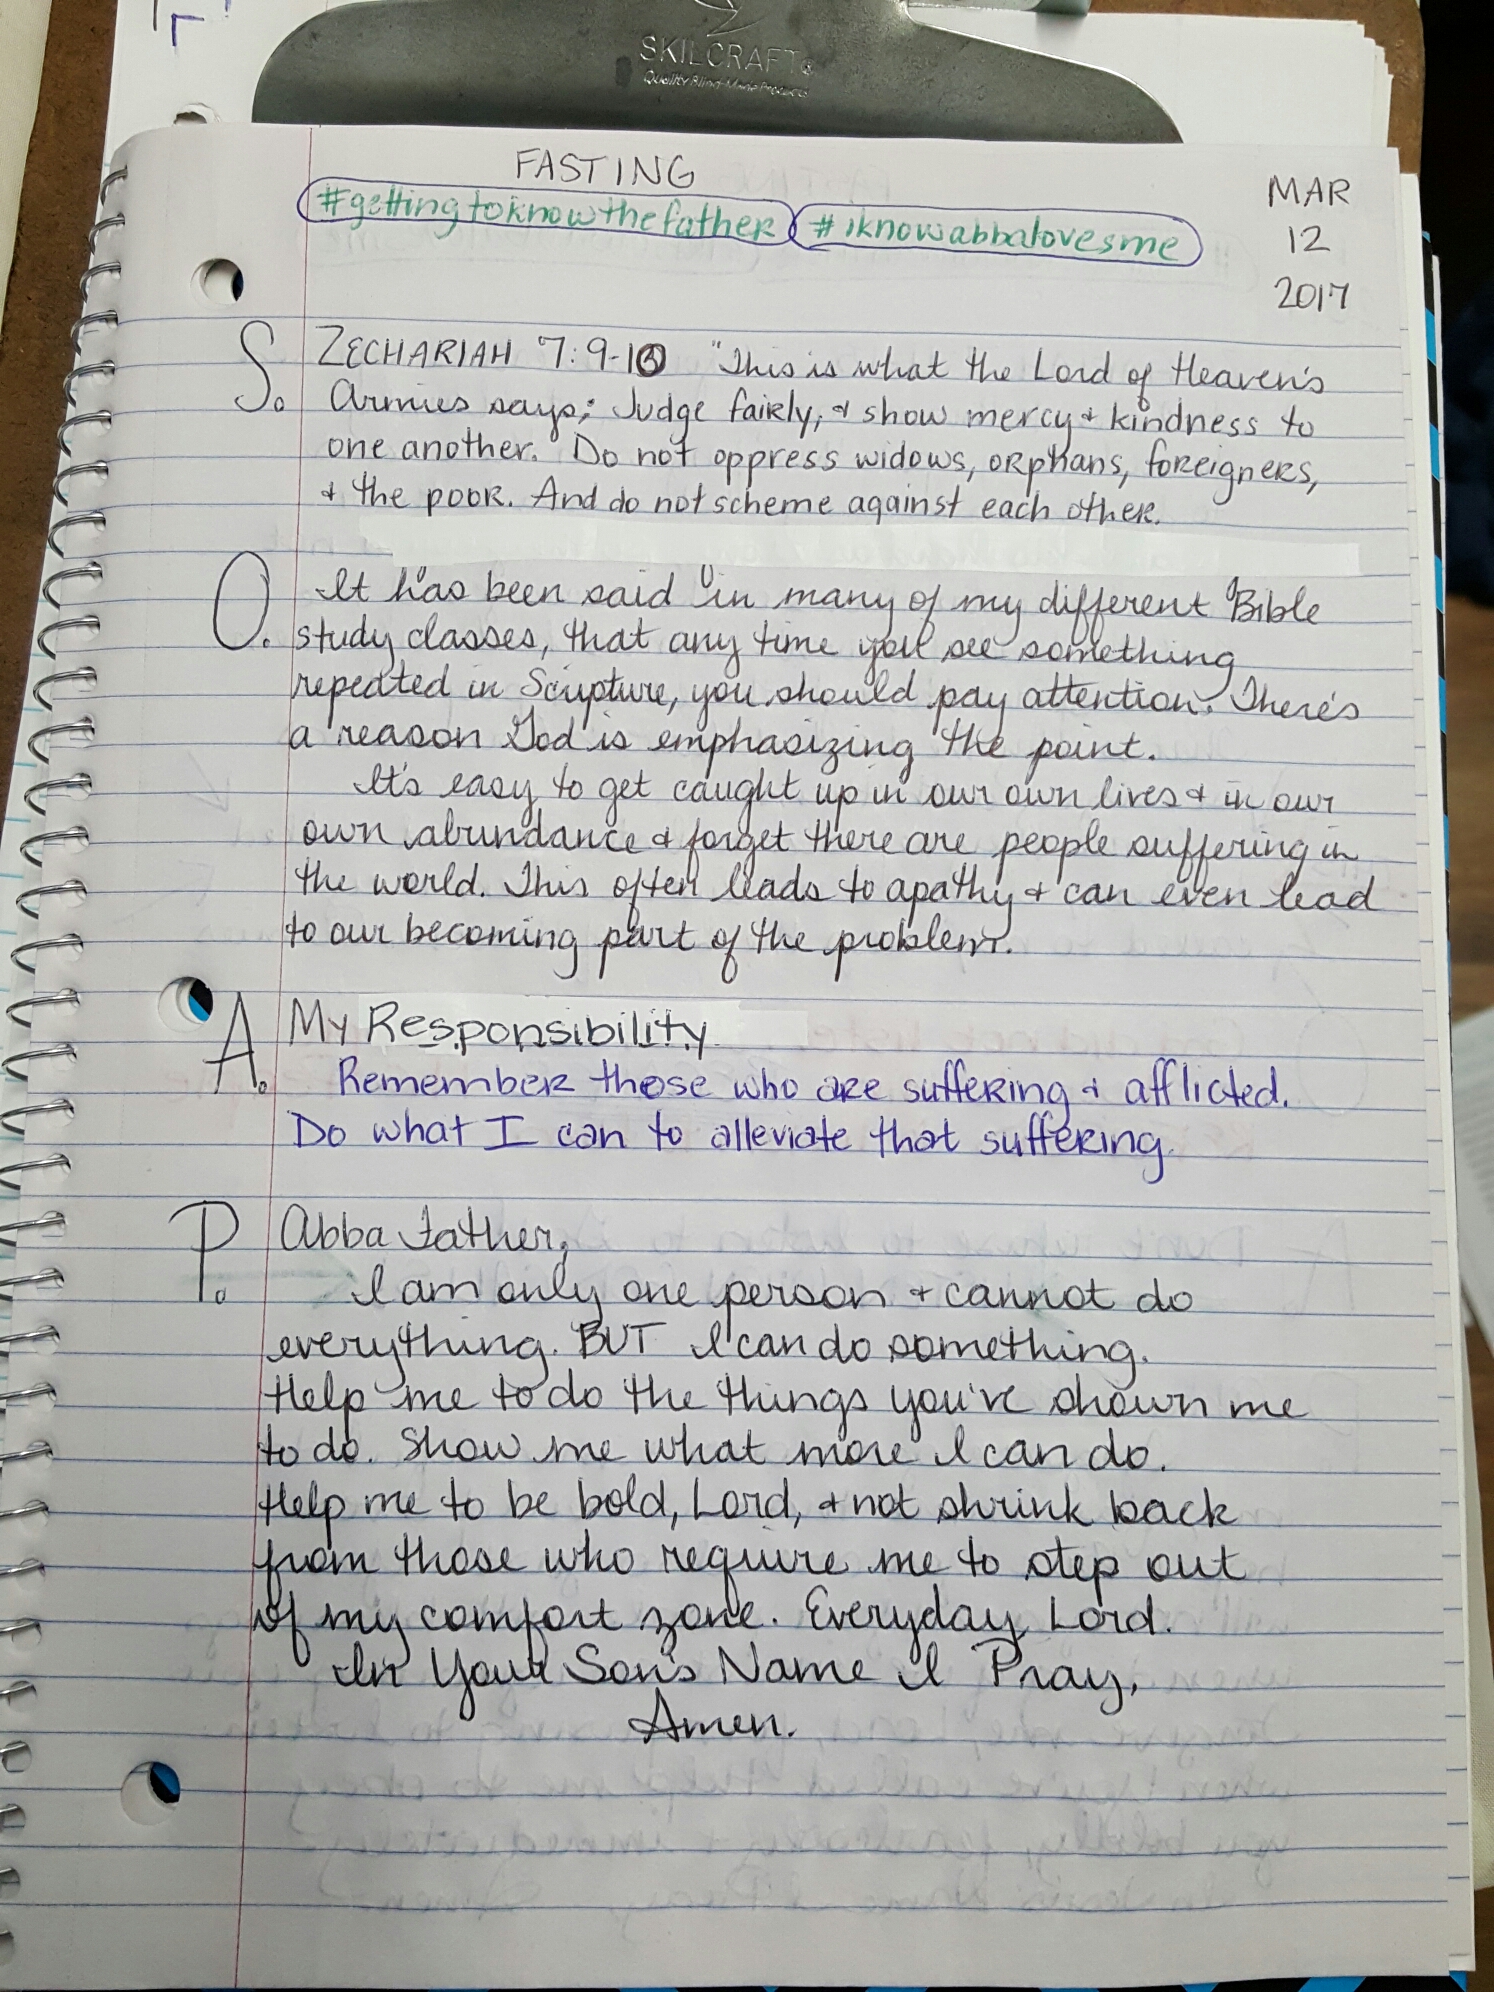 SKILCRAFT®
Quality Blind Made Products
FASTING
#gettingtoknowthefather #iknowabbalovesme
MAR
12
2017
S. ZECHARIAH 7:9-10 "This is what the Lord of Heaven's
Armies says: Judge fairly, & show mercy & kindness to
one another. Do not oppress widows, orphans, foreigners,
& the poor. And do not scheme against each other.
O. It has been said in many of my different Bible
study classes, that any time you see something
repeated in Scripture, you should pay attention. There's
a reason God is emphasizing the point.
It's easy to get caught up in our own lives & in our
own abundance & forget there are people suffering in
the world. This often leads to apathy & can even lead
to our becoming part of the problem.
A. My Responsibility
Remember those who are suffering & afflicted.
Do what I can to alleviate that suffering.
P. Abba Father,
I am only one person & cannot do
everything. BUT I can do something.
Help me to do the things you've shown me
to do. Show me what more I can do.
Help me to be bold, Lord, & not shrink back
from those who require me to step out
of my comfort zone. Everyday Lord.
In Your Son's Name I Pray,
Amen.